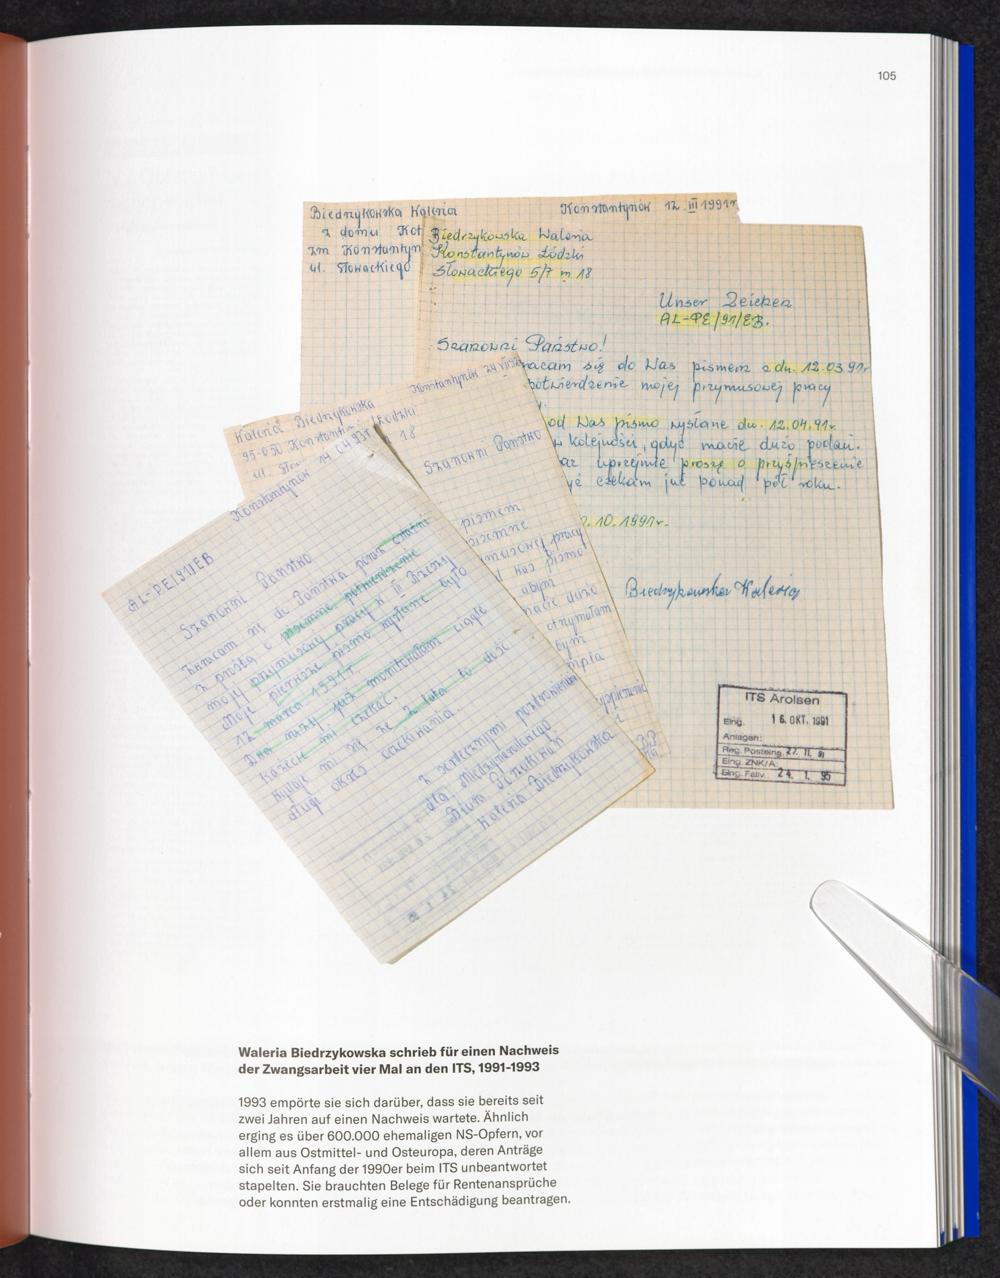 105
Biedrzykowska Waleria
Konstantynów 12.III 1991r
z domu Kot
zm Konstantyn
ul. Słowackiego
Biedrzykowska Waleria
Konstantynów Łódzki
Słowackiego 5/7 m 18
Unser Zeichen
AL-PE/91/EB.
Szanowni Państwo!
racam się do Was pismem z dn. 12.03.91r
potwierdzenie mojej przymusowej pracy
od Was pismo wysłane dn. 12.04.91r.
w kolejności, gdyż macie dużo podań.
az uprzejmie proszę o przyśpieszenie
yż czekam już ponad pół roku.
.10.1991r.
Biedrzykowska Waleria
ITS Arolsen
Eing. 16. OKT. 1991
Anlagen:
Reg. Posteing. 27. 11. 91
Eing. ZNK/A
Eing. Fallv. 24. 1. 95
Waleria Biedrzykowska
95-050 Konstantynów Łódzki
18
Szanowni Państwo
pismem
pisemne
muzowej pracy
Was pismo
abym
macie dużo
otrzymałam
bym
Konstantynów 14 04 93r
AL-PE/91/EB
Szanowni Państwo
Zwracam się do Państwa poraz czwarty
z prośbą o pisemne potwierdzenie
mojej przymusowej pracy w III Rzeszy
Moje pierwsze pismo wysłane było
12 marca 1991r
ciągle
każecie mi czekać.
Wydaje mi się że 2 lata to dość
długi okres oczekiwania.
z serdecznymi pozdrowieniami
dla Międzynarodowego
Biura Poszukiwań
Waleria Biedrzykowska
Waleria Biedrzykowska schrieb für einen Nachweis
der Zwangsarbeit vier Mal an den ITS, 1991-1993
1993 empörte sie sich darüber, dass sie bereits seit
zwei Jahren auf einen Nachweis wartete. Ähnlich
erging es über 600.000 ehemaligen NS-Opfern, vor
allem aus Ostmittel- und Osteuropa, deren Anträge
sich seit Anfang der 1990er beim ITS unbeantwortet
stapelten. Sie brauchten Belege für Rentenansprüche
oder konnten erstmalig eine Entschädigung beantragen.